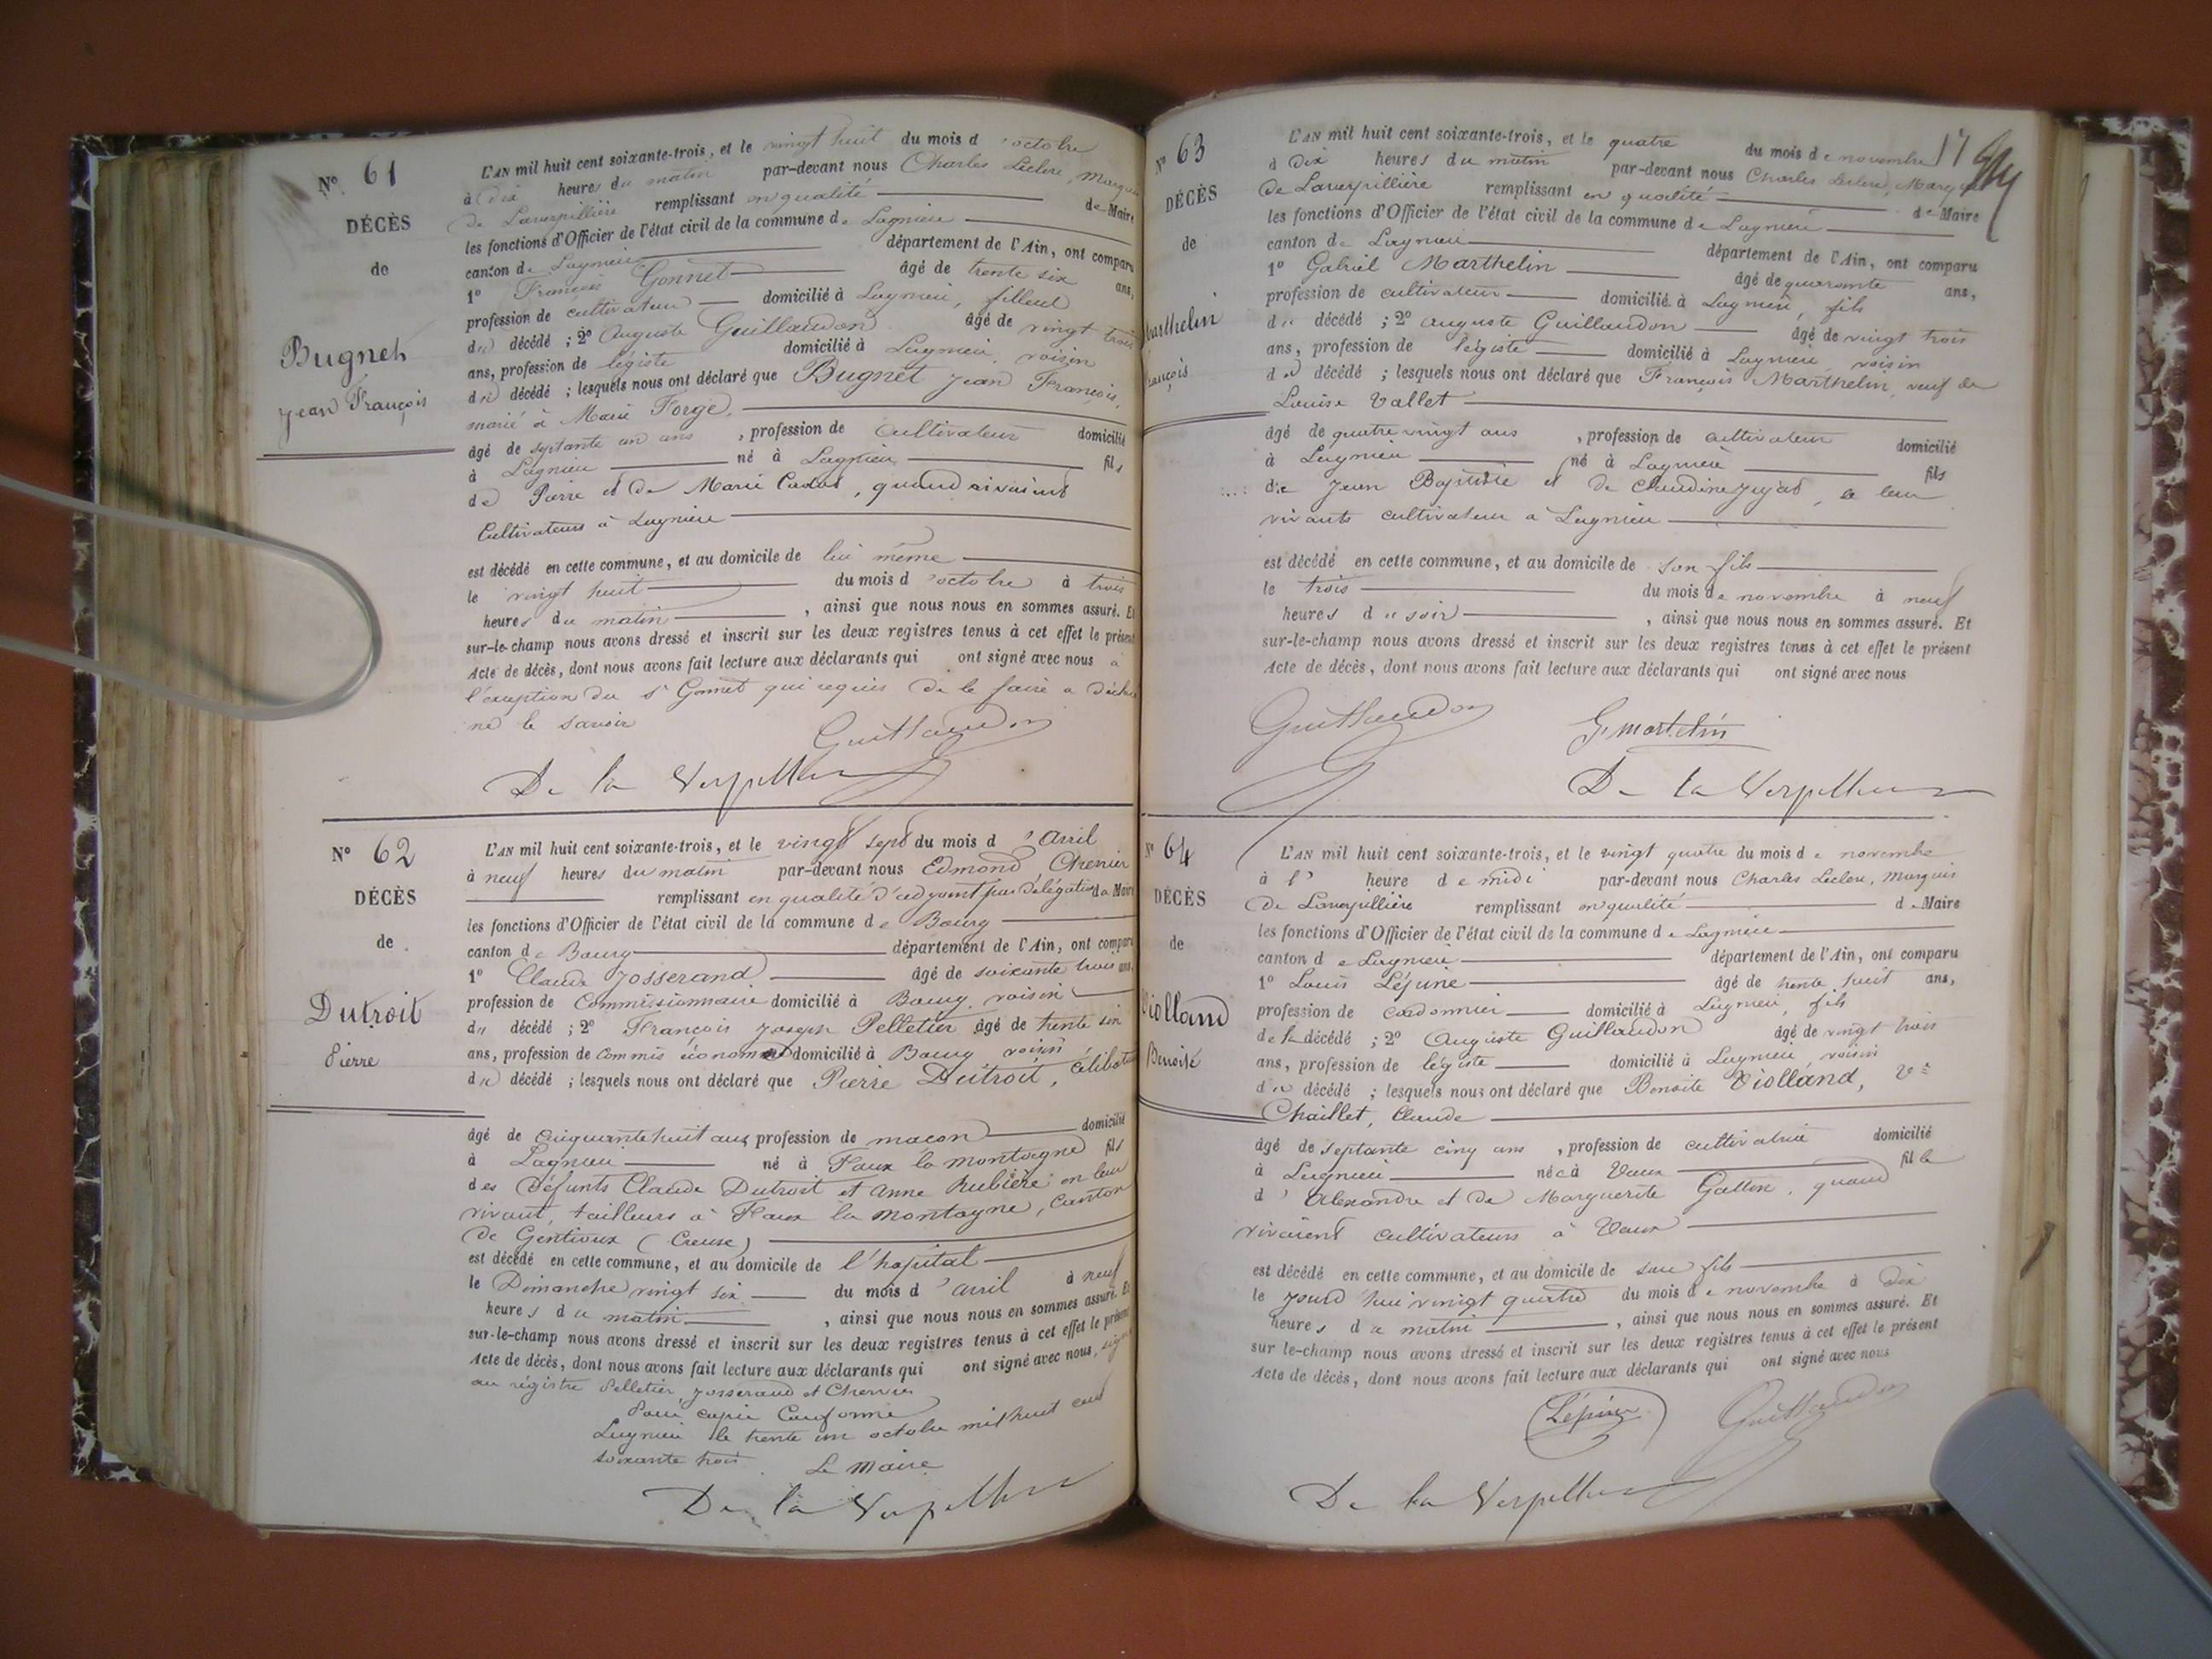 N° 61
DÉCÈS
de
Bugnet
Jean François
L'AN mil huit cent soixante-trois, et le vingt huit du mois d'octobre
à dix heures du matin par-devant nous Charles Leclerc, Marquis
de Laverpillière remplissant en qualité de Maire
les fonctions d'Officier de l'état civil de la commune de Lagnieu
canton de Lagnieu département de l'Ain, ont comparu
1° François Gonnet âgé de trente six ans,
profession de cultivateur domicilié à Lagnieu, filleul
du décédé ; 2° Auguste Guillaudon âgé de vingt trois
ans, profession de légiste domicilié à Lagnieu, voisin
du décédé ; lesquels nous ont déclaré que Bugnet Jean François,
marié à Marie Forge,
âgé de septante un ans , profession de cultivateur domicilié
à Lagnieu né à Lagnieu fils
de Pierre et de Marie , quand vivaient
Cultivateurs à Lagnieu
est décédé en cette commune, et au domicile de lui même
le vingt huit du mois d'octobre à trois
heures du matin , ainsi que nous nous en sommes assuré. Et
sur-le-champ nous avons dressé et inscrit sur les deux registres tenus à cet effet le présent
Acte de décès, dont nous avons fait lecture aux déclarants qui ont signé avec nous à
l'exception du sr Gonnet qui requis de le faire a déclaré
ne le savoir
Guillaudon
De la Verpillière
N° 62
DÉCÈS
de
Dutroit
Pierre
L'AN mil huit cent soixante-trois, et le vingt sept du mois d'Avril
à neuf heures du matin par-devant nous Edmond Chenier
remplissant en qualité d'adjoint par délégation du Maire
les fonctions d'Officier de l'état civil de la commune de Bourg
canton de Bourg département de l'Ain, ont comparu
1° Claude Josserand âgé de soixante trois ans,
profession de Commissionnaire domicilié à Bourg, voisin
du décédé ; 2° François Joseph Pelletier âgé de trente six
ans, profession de Commis économe domicilié à Bourg voisin
du décédé ; lesquels nous ont déclaré que Pierre Dutroit, célibataire
âgé de cinquante huit ans, profession de maçon domicilié
à Lagnieu né à Faux la montagne fils
des défunts Claude Dutroit et Anne Rubière en leur
vivant, tailleurs à Faux la Montagne, canton
de Gentioux (Creuse)
est décédé en cette commune, et au domicile de l'hopital
le Dimanche vingt six du mois d'avril à neuf
heures du matin , ainsi que nous nous en sommes assuré. Et
sur-le-champ nous avons dressé et inscrit sur les deux registres tenus à cet effet le présent
Acte de décès, dont nous avons fait lecture aux déclarants qui ont signé avec nous, signé
au régistre Pelletier, Josserand et Chenier
Pour copie Conforme
Lagnieu le trente un octobre mil huit cent
soixante trois. Le Maire
De la Verpillière
N° 63
DÉCÈS
de
Marthelin
François
L'AN mil huit cent soixante-trois, et le quatre du mois de novembre
à Dix heures du matin par-devant nous Charles Leclerc, Marquis
de Laverpillière remplissant en qualité de Maire
les fonctions d'Officier de l'état civil de la commune de Lagnieu
canton de Lagnieu département de l'Ain, ont comparu
1° Gabriel Marthelin âgé de quarante ans,
profession de cultivateur domicilié à Lagnieu, fils
du décédé ; 2° Auguste Guillaudon âgé de vingt trois
ans, profession de légiste domicilié à Lagnieu voisin
du décédé ; lesquels nous ont déclaré que François Marthelin, veuf de
Louise Vallet
âgé de quatre vingt ans , profession de cultivateur domicilié
à Lagnieu né à Lagnieu fils
de Jean Baptiste et de Claudine , de leur
vivants cultivateur à Lagnieu
est décédé en cette commune, et au domicile de son fils
le trois du mois de novembre à neuf
heures du soir , ainsi que nous nous en sommes assuré. Et
sur-le-champ nous avons dressé et inscrit sur les deux registres tenus à cet effet le présent
Acte de décès, dont nous avons fait lecture aux déclarants qui ont signé avec nous
Guillaudon G. martelin
De la Verpillière
N° 64
DÉCÈS
de
Violland
Benoite
L'AN mil huit cent soixante-trois, et le vingt quatre du mois de novembre
à l' heure de midi par-devant nous Charles Leclerc, Marquis
De Laverpillière remplissant en qualité de Maire
les fonctions d'Officier de l'état civil de la commune de Lagnieu
canton de Lagnieu département de l'Ain, ont comparu
1° Louis Lépine âgé de trente huit ans,
profession de cordonnier domicilié à Lagnieu, fils
de la décédé ; 2° Auguste Guillaudon âgé de vingt trois
ans, profession de légiste domicilié à Lagnieu, voisin
du décédé ; lesquels nous ont déclaré que Benoite Violland, Ve
Chaillet, Claude
âgé de septante cinq ans , profession de cultivatrice domicilié
à Lagnieu née à Vaux fille
d'Alexandre et de Marguerite Gallin, quand
vivaient cultivateurs à Vaux
est décédé en cette commune, et au domicile de son fils
le jourd'hui vingt quatre du mois de novembre à dix
heures du matin , ainsi que nous nous en sommes assuré. Et
sur le-champ nous avons dressé et inscrit sur les deux registres tenus à cet effet le présent
Acte de décès, dont nous avons fait lecture aux déclarants qui ont signé avec nous
Lépine Guillaudon
De la Verpillière